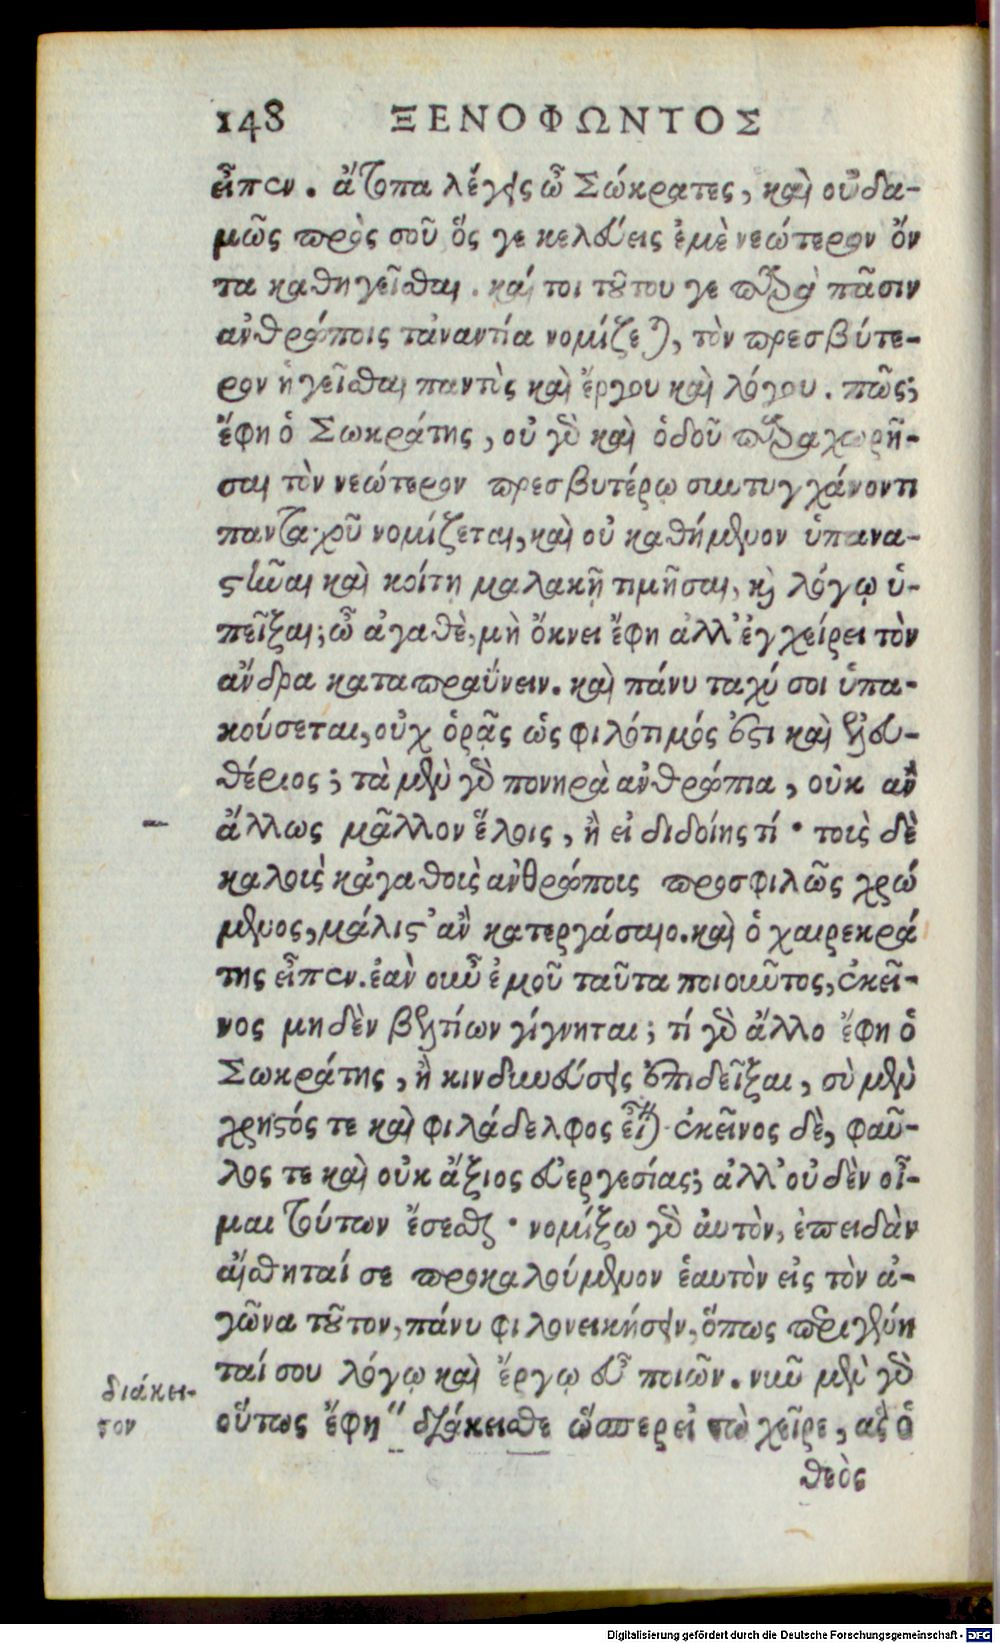 148 ΞΕΝΟΦΩΝΤΟΣ
εἶπεν. ἄτοπα λέγεις ὦ Σώκρατες, καὶ οὐδα-
μῶς πρὸς σοῦ ὅς γε κελεύεις ἐμὲ νεώτερον ὄν
τα καθηγεῖσθαι. καί τοι τούτου γε παρὰ πᾶσιν
ἀνθρώποις τἀναντία νομίζεται, τὸν πρεσβύτε-
ρον ἡγεῖσθαι παντὸς καὶ ἔργου καὶ λόγου. πῶς;
ἔφη ὁ Σωκράτης, οὐ γὰρ καὶ ὁδοῦ παραχωρῆ-
σαι τὸν νεώτερον πρεσβυτέρῳ συντυγχάνοντι
πανταχοῦ νομίζεται, καὶ οὐ καθήμενον ὑπανα-
στῆναι καὶ κοίτῃ μαλακῇ τιμῆσαι, καὶ λόγῳ ὑ-
πεῖξαι; ὦ ἀγαθὲ, μὴ ὄκνει ἔφη ἀλλ' ἐγχείρει τὸν
ἄνδρα καταπραΰνειν. καὶ πάνυ ταχύ σοι ὑπα-
κούσεται, οὐχ ὁρᾷς ὡς φιλότιμός ἐστι καὶ ἐλευ-
θέριος; τὰ μὲν γὰρ πονηρὰ ἀνθρώπια, οὐκ ἂν
ἄλλως μᾶλλον ἕλοις, ἢ εἰ διδοίης τί · τοὶς δὲ
καλοὶς κἀγαθοὶς ἀνθρώποις προσφιλῶς χρώ
μενος, μάλιστ' ἂν κατεργάσαιο. καὶ ὁ χαιρεκρά
της εἶπεν. ἐὰν οὖν ἐμοῦ ταῦτα ποιοῦντος, ἐκεῖ-
νος μηδὲν βελτίων γίγνηται; τί γὰρ ἄλλο ἔφη ὁ
Σωκράτης, ἢ κινδυνεύσεις ἐπιδεῖξαι, σὺ μὲν
χρηστός τε καὶ φιλάδελφος εἶναι · ἐκεῖνος δὲ, φαῦ-
λος τε καὶ οὐκ ἄξιος εὐεργεσίας; ἀλλ' οὐδὲν οἶ-
μαι τούτων ἔσεσθαι · νομίζω γὰρ ἀυτὸν, ἐπειδὰν
αἴσθηταί σε προκαλούμενον ἑαυτὸν εἰς τὸν ἀ-
γῶνα τοῦτον, πάνυ φιλονεικήσειν, ὅπως περιγένη
ταί σου λόγῳ καὶ ἔργῳ εὖ ποιῶν. νῦν μὲν γὰρ
οὕτως ἔφη " διάκεισθε ὥσπερ εἰ τὼ χεῖρε, ἃς ὁ
θεὸς
διάκει-
τον
Digitalisierung gefördert durch die Deutsche Forschungsgemeinschaft - DFG